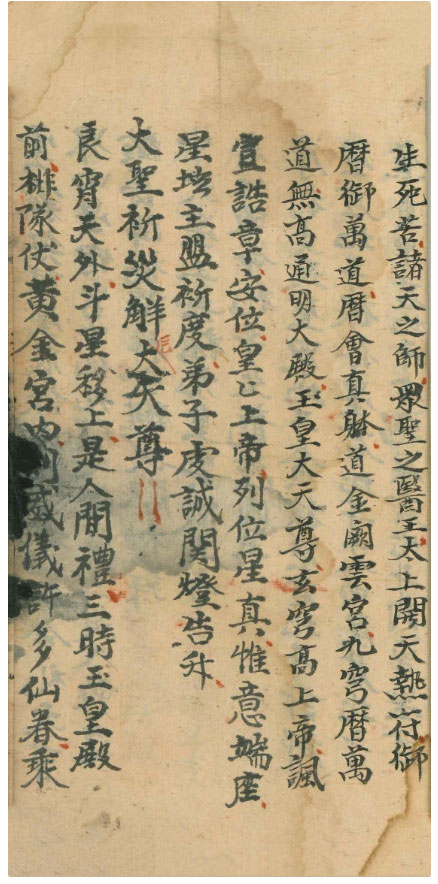 生死苦諸天之師眾聖之醫王太上開天熱符御
曆御萬道曆會真躰道金闕雲宮九穹曆萬
道無高通明大殿玉皇大天尊玄穹高上帝諷
宣誥章安位皇匕上帝列位星真惟意端座
星壇主盟祈度弟子虔誠関燈告升
大聖祈災解大厄天尊〢
良宵天外斗星移上是人間禮三時玉皇殿
前排隊仗黃金宮內列威儀許多仙眷乘